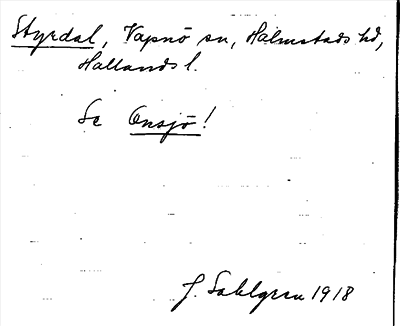 Styrdal, Vapnö sn, Halmstads hd,
Hallands l.
Se Onsjö!
J. Sahlgren 1918